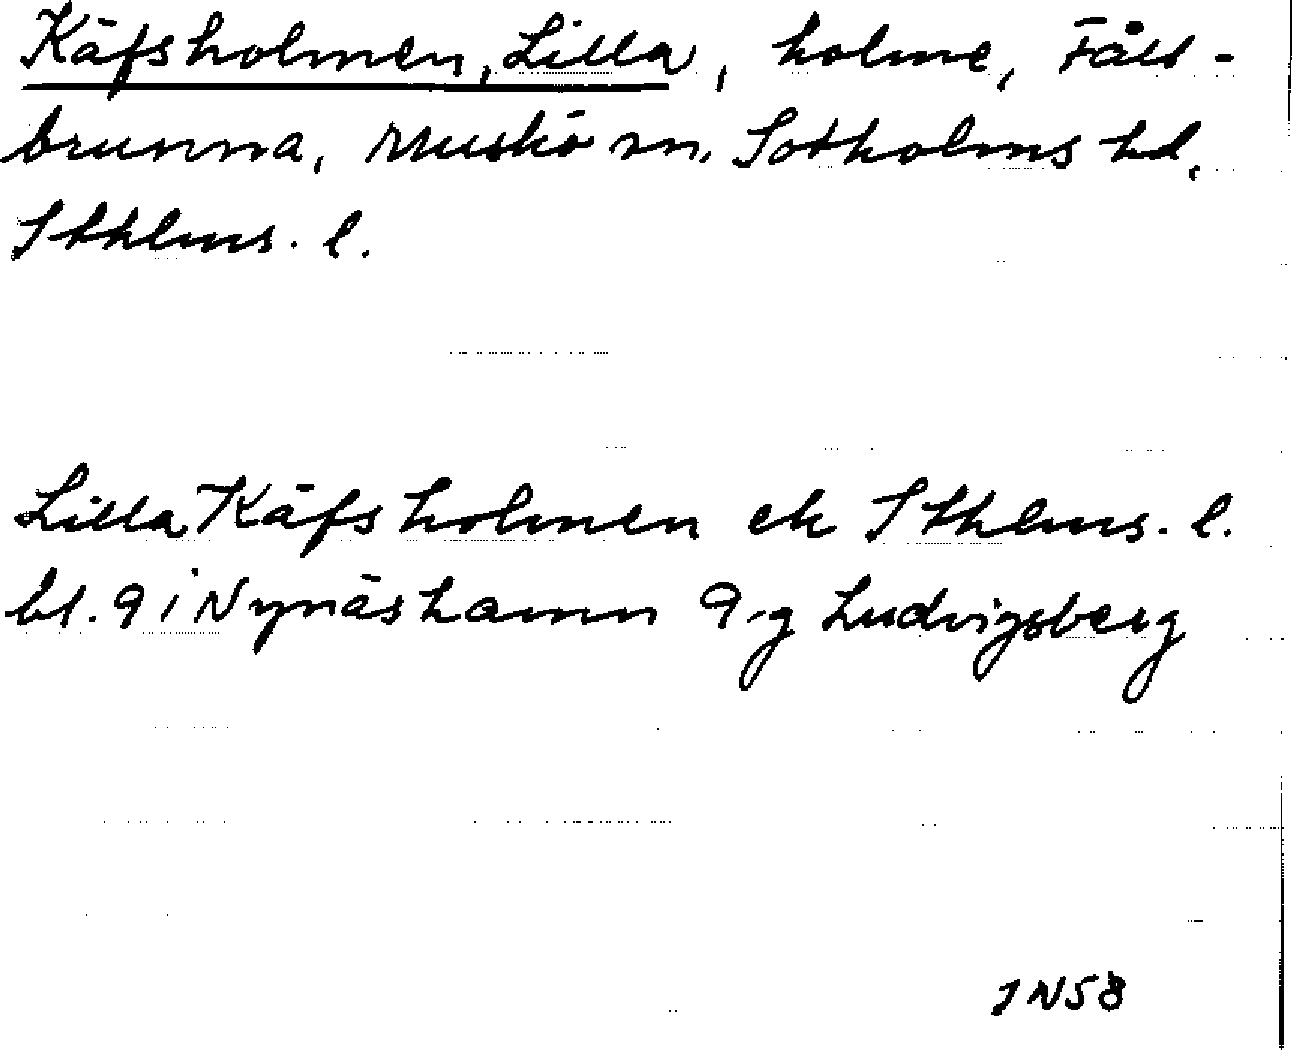 Käfsholmen, Lilla, holme, Fåld-
brunna, Muskö sn, Sotholms hd,
Sthlms. l.
Lilla Käfsholmen ek Sthlms. l.
bl. 9 i Nynäshamn 9-g Ludvigsberg
JN58